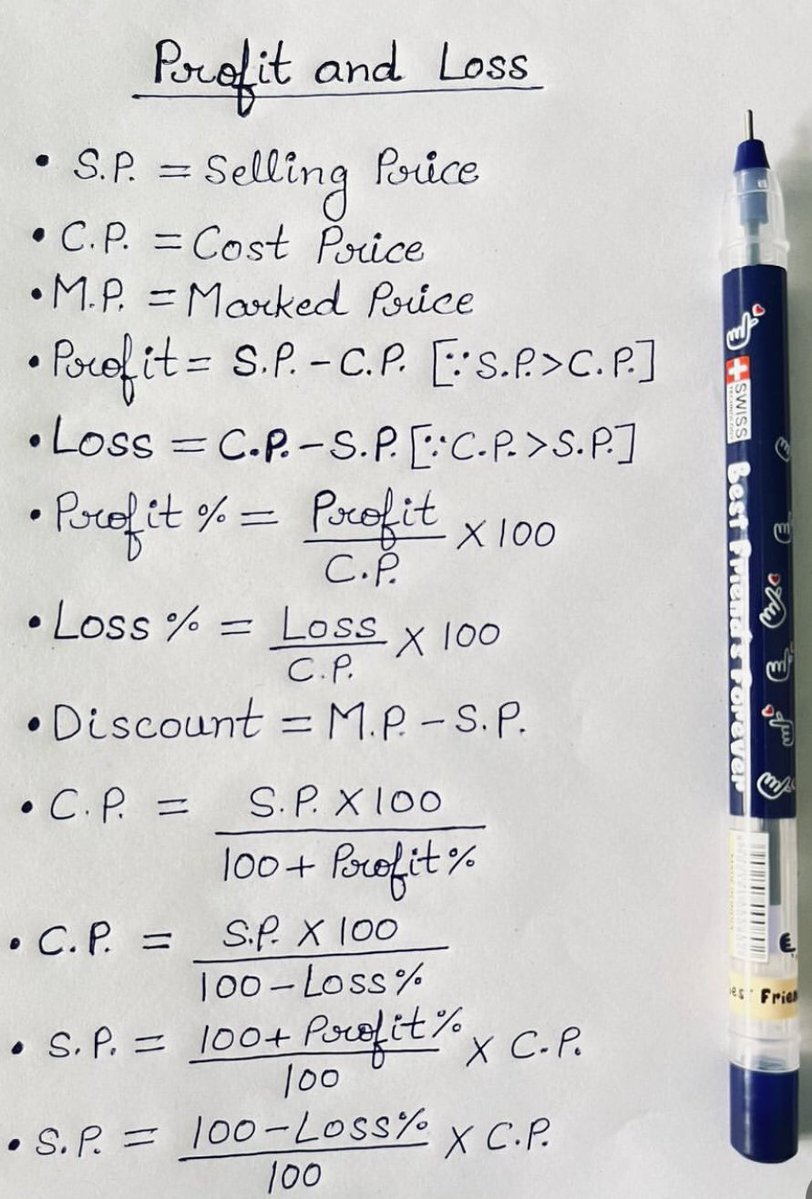 Profit and Loss
• S.P. = Selling Price
• C.P. = Cost Price
• M.P. = Marked Price
• Profit = S.P. - C.P. [∵ S.P. > C.P.]
• Loss = C.P. - S.P. [∵ C.P. > S.P.]
• Profit % = Profit / C.P. X 100
• Loss % = Loss / C.P. X 100
• Discount = M.P. - S.P.
• C.P. = S.P. X 100 / 100 + Profit %
• C.P. = S.P. X 100 / 100 - Loss %
• S.P. = 100 + Profit % / 100 X C.P.
• S.P. = 100 - Loss % / 100 X C.P.
SWISS
Best Friend's Forever